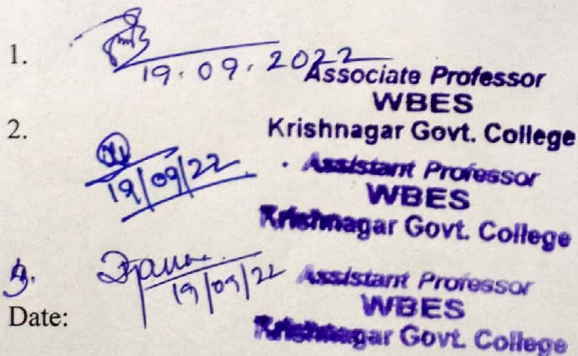 1.
19.09.2022
Associate Professor
WBES
Krishnagar Govt. College
2.
19/09/22
Assistant Professor
WBES
Krishnagar Govt. College
3.
19/09/22
Assistant Professor
WBES
Krishnagar Govt. College
Date: